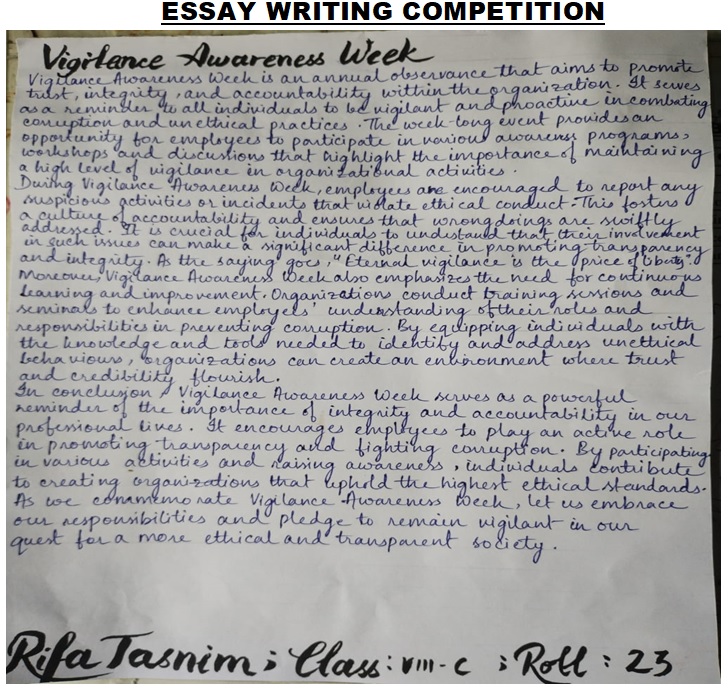 ESSAY WRITING COMPETITION
Vigilance Awareness Week
Vigilance Awareness Week is an annual observance that aims to promote
trust, integrity, and accountability within the organization. It serves
as a reminder to all individuals to be vigilant and proactive in combating
corruption and unethical practices. The week-long event provides an
opportunity for employees to participate in various awareness programs,
workshops and discussions that highlight the importance of maintaining
a high level of vigilance in organizational activities.
During Vigilance Awareness Week, employees are encouraged to report any
suspicious activities or incidents that violate ethical conduct. This fosters
a culture of accountability and ensures that wrongdoings are swiftly
addressed. It is crucial for individuals to understand that their involvement
in such issues can make a significant difference in promoting transparency
and integrity. As the saying goes, "Eternal vigilance is the price of liberty".
Moreover, Vigilance Awareness Week also emphasizes the need for continuous
learning and improvement. Organizations conduct training sessions and
seminals to enhance employees' understanding of their roles and
responsibilities in preventing corruption. By equipping individuals with
the knowledge and tools needed to identify and address unethical
behaviours, organizations can create an environment where trust
and credibility flourish.
In conclusion, Vigilance Awareness Week serves as a powerful
reminder of the importance of integrity and accountability in our
professional lives. It encourages employees to play an active role
in promoting transparency and fighting corruption. By participating
in various activities and raising awareness, individuals contribute
to creating organizations that uphold the highest ethical standards.
As we commemorate Vigilance Awareness Week, let us embrace
our responsibilities and pledge to remain vigilant in our
quest for a more ethical and transparent society.
Rifa Tasnim ; Class : VIII-C ; Roll : 23